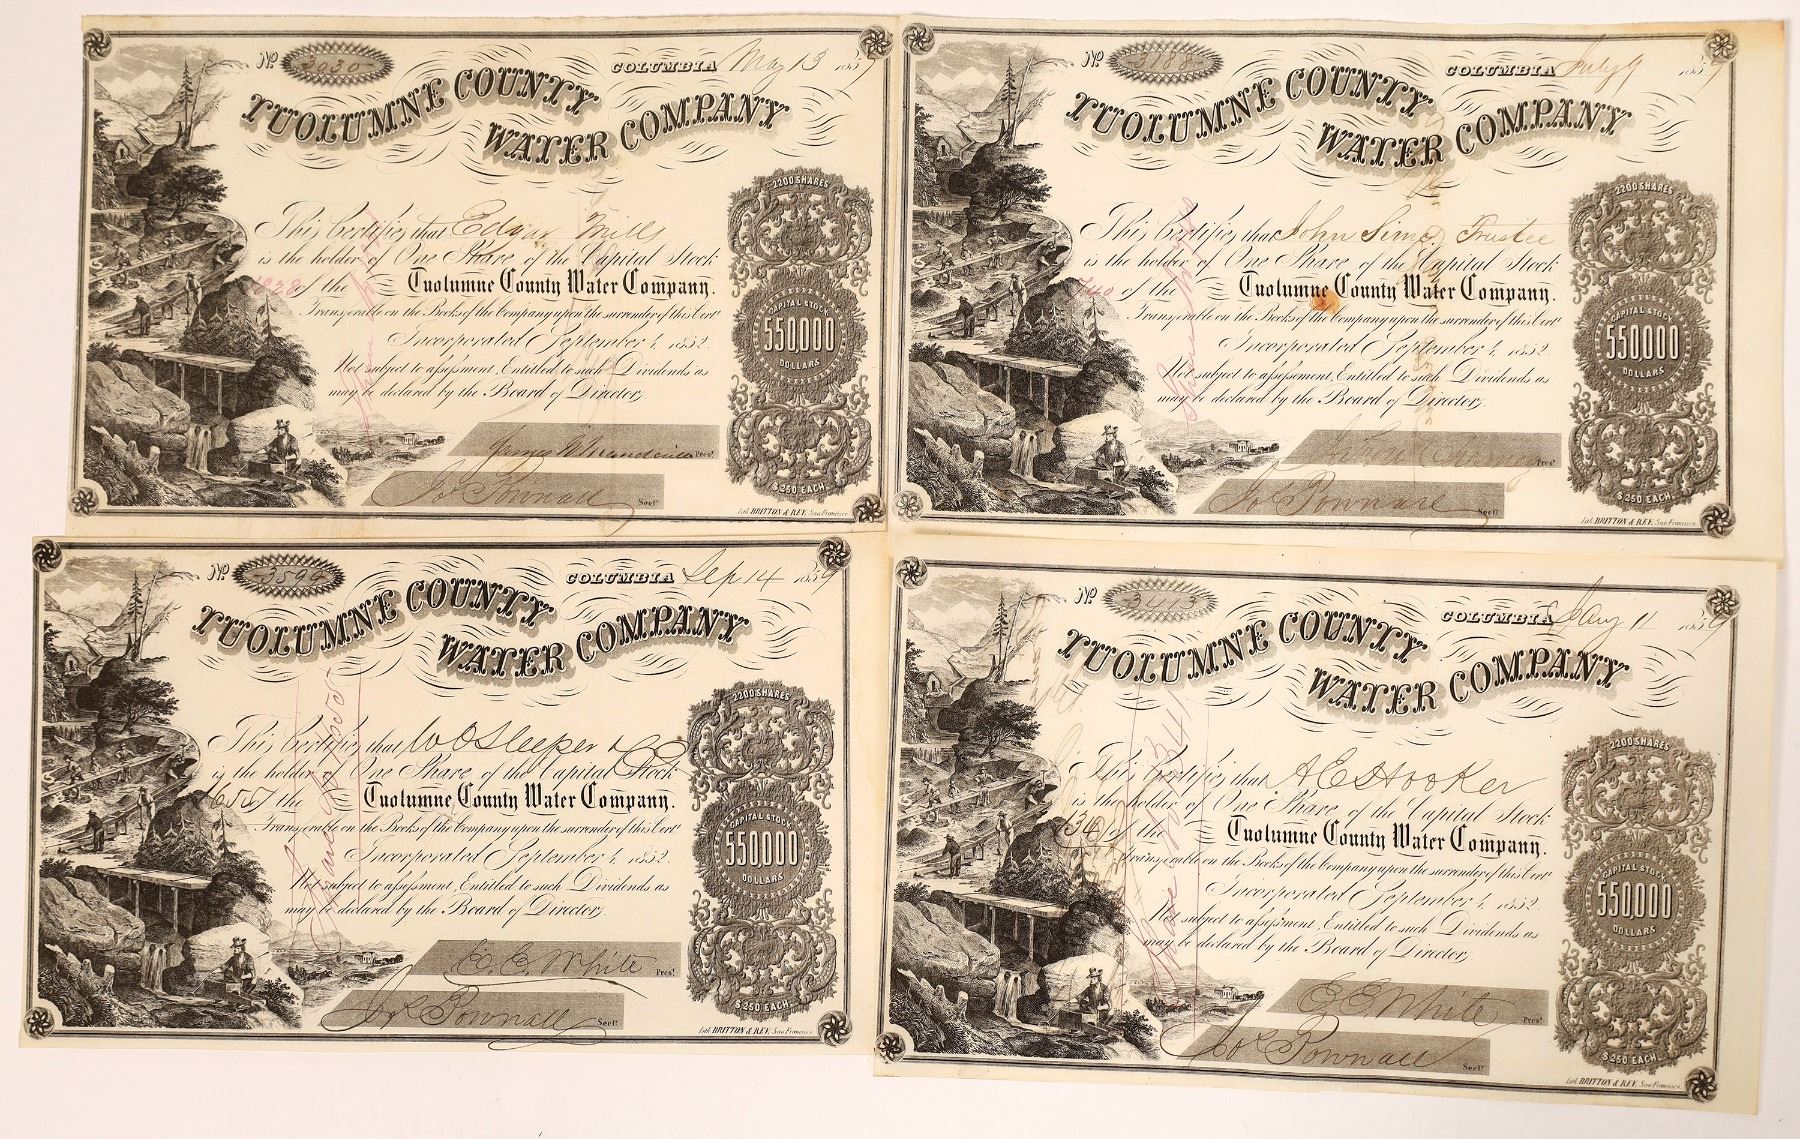 Nº 3030 COLUMBIA May 13 185
TUOLUMNE COUNTY
WATER COMPANY
2200 SHARES
This Certifies that Edgar Mills
is the holder of One Share of the Capital Stock
1828 of the Tuolumne County Water Company.
Transferable on the Books of the Company upon the surrender of this Certt
Incorporated September 4, 1852.
Not subject to assessment, Entitled to such Dividends as
may be declared by the Board of Directors.
CAPITAL STOCK
550,000
DOLLARS
$250 EACH
Prest
Jos Pownall Secty
Lith. BRITTON & REY, San Francisco
Nº 3188 COLUMBIA July 9 185
TUOLUMNE COUNTY
WATER COMPANY
2200 SHARES
This Certifies that John Sime, Trustee
is the holder of One Share of the Capital Stock
of the Tuolumne County Water Company.
Transferable on the Books of the Company upon the surrender of this Certt
Incorporated September 4, 1852.
Not subject to assessment, Entitled to such Dividends as
may be declared by the Board of Directors.
CAPITAL STOCK
550,000
DOLLARS
$250 EACH
Prest
Jos Pownall Secty
Lith. BRITTON & REY, San Francisco
Nº COLUMBIA Sep 14 1859
TUOLUMNE COUNTY
WATER COMPANY
2200 SHARES
This Certifies that W O Sleeper & Co
is the holder of One Share of the Capital Stock
of the Tuolumne County Water Company.
Transferable on the Books of the Company upon the surrender of this Certt
Incorporated September 4, 1852.
Not subject to assessment, Entitled to such Dividends as
may be declared by the Board of Directors.
CAPITAL STOCK
550,000
DOLLARS
$250 EACH
E. E. White Prest
Jos Pownall Secty
Lith. BRITTON & REY, San Francisco
Nº COLUMBIA 11 185
TUOLUMNE COUNTY
WATER COMPANY
2200 SHARES
This Certifies that A E Hooker
is the holder of One Share of the Capital Stock
1341 of the Tuolumne County Water Company.
Transferable on the Books of the Company upon the surrender of this Certt
Incorporated September 4, 1852.
Not subject to assessment, Entitled to such Dividends as
may be declared by the Board of Directors.
CAPITAL STOCK
550,000
DOLLARS
$250 EACH
E. E. White Prest
Jos Pownall Secty
Lith. BRITTON & REY, San Francisco